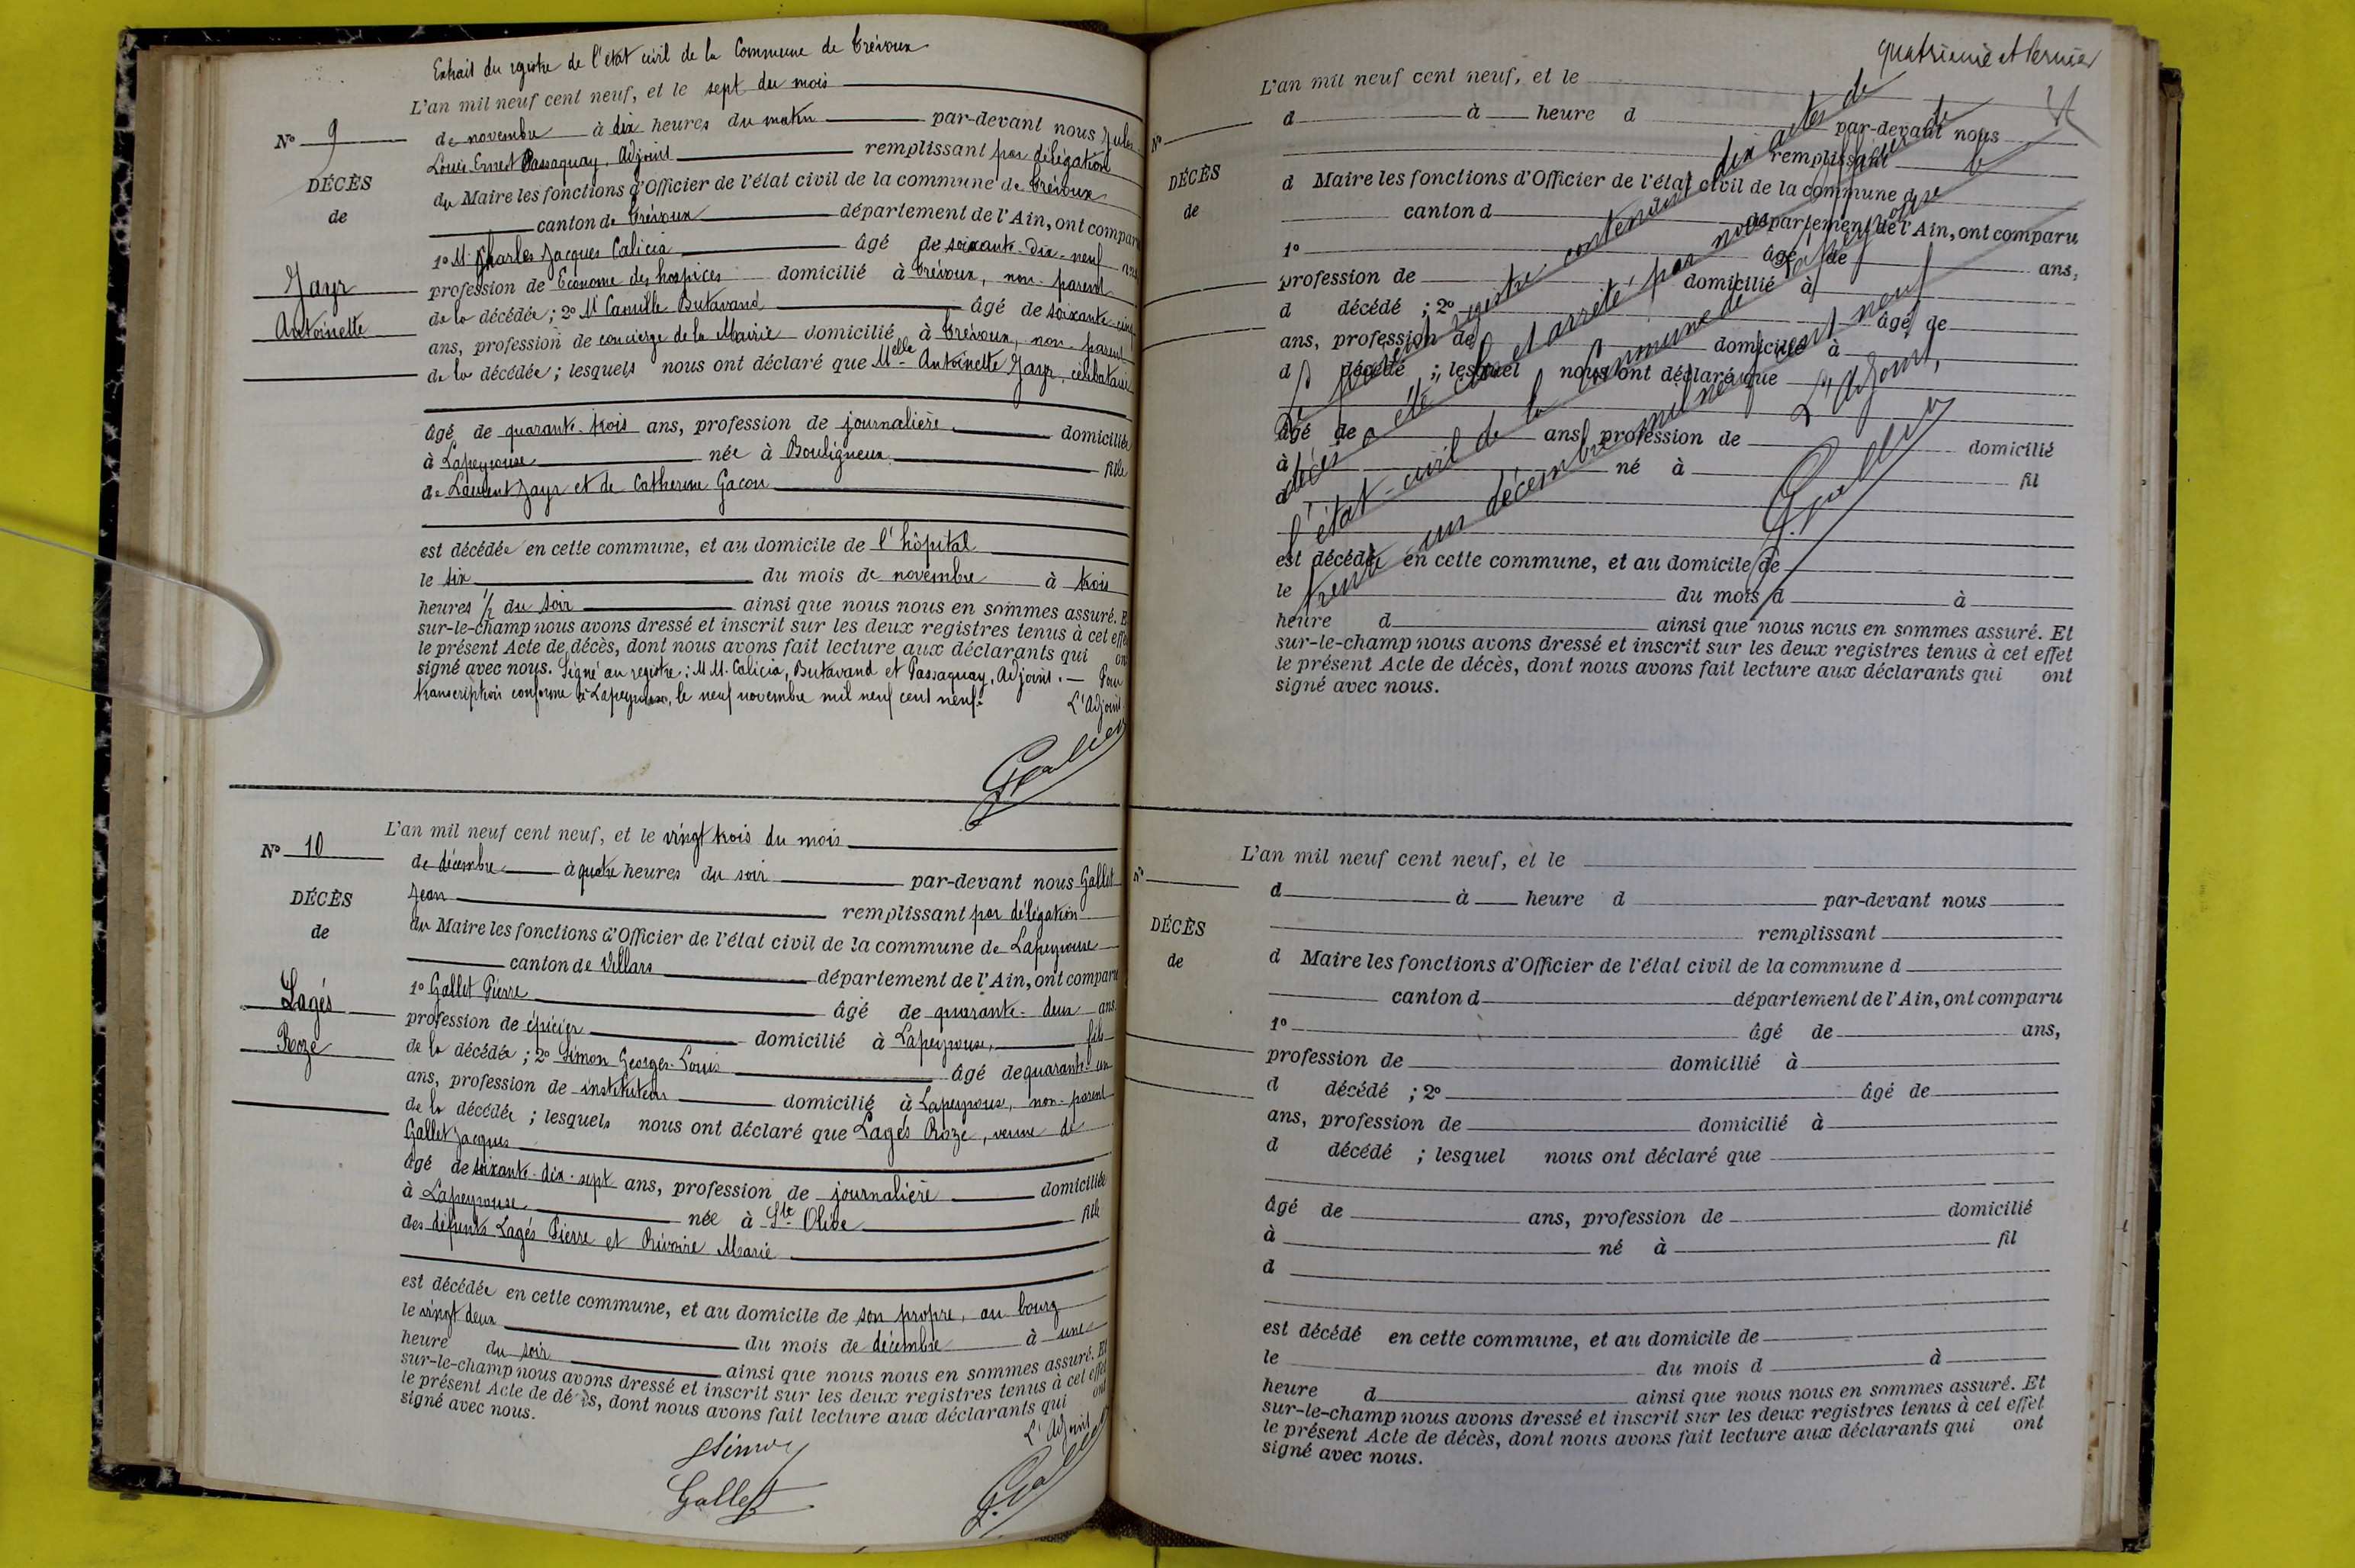 Extrait du registre de l'état civil de la Commune de Trévoux
L'an mil neuf cent neuf, et le sept du mois
N° 9
de novembre à dix heures du matin par-devant nous Jules
Louis Ernest Passaquay, Adjoint remplissant par délégation
DÉCÈS
du Maire les fonctions d'Officier de l'état civil de la commune de Trévoux
de
canton de Trévoux département de l'Ain, ont comparu
1° M. Charles Jacques Calicia âgé de soixante-dix-neuf ans
Jayr
profession de Econome des hospices domicilié à Trévoux, non-parent
Antoinette
de la décédée ; 2° M. Camille Butavand âgé de soixante-cinq
ans, profession de concierge de la Mairie domicilié à Trévoux, non-parent
de la décédée ; lesquels nous ont déclaré que Melle Antoinette Jayr, célibataire
âgé de quarante-trois ans, profession de journalière domiciliée
à Lapeyrouse née à Bouligneux fille
de Laurent Jayr et de Catherine Gacon
est décédée en cette commune, et au domicile de l'hôpital
le six du mois de novembre à trois
heures 1/2 du soir ainsi que nous nous en sommes assuré. E
sur-le-champ nous avons dressé et inscrit sur les deux registres tenus à cet effe
le présent Acte de décès, dont nous avons fait lecture aux déclarants qui on
signé avec nous. Signé au registre : M.M. Calicia, Butavand et Passaquay, Adjoint. — Pour
transcription conforme à Lapeyrouse, le neuf novembre mil neuf cent neuf.
L'Adjoint
G. Gallet
L'an mil neuf cent neuf, et le vingt trois du mois
N° 10
de décembre à quatre heures du soir par-devant nous Gallet
Jean remplissant par délégation
DÉCÈS
du Maire les fonctions d'Officier de l'état civil de la commune de Lapeyrouse
de
canton de Villars département de l'Ain, ont comparu
1° Gallet Pierre âgé de quarante-deux ans
Lagés
profession de épicier domicilié à Lapeyrouse, fils
Roze
de la décédée ; 2° Simon Georges-Louis âgé de quarante-un
ans, profession de instituteur domicilié à Lapeyrouse, non-parent
de la décédée ; lesquels nous ont déclaré que Lagés Roze, veuve de
Gallet Jacques
âgé de soixante-dix-sept ans, profession de journalière domiciliée
à Lapeyrouse née à Ste Olive fille
des défunts Lagés Pierre et Rivoire Marie
est décédée en cette commune, et au domicile de son propre, au bourg
le vingt deux du mois de décembre à une
heure du soir ainsi que nous nous en sommes assuré. Et
sur-le-champ nous avons dressé et inscrit sur les deux registres tenus à cet effet
le présent Acte de décès, dont nous avons fait lecture aux déclarants qui ont
signé avec nous.
L'Adjoint
GSimon
Gallet
G. Gallet
quatrième et dernier
L'an mil neuf cent neuf, et le
N°
d à heure d par-devant nous
remplissant
DÉCÈS
d Maire les fonctions d'Officier de l'état civil de la commune d
de
canton d département de l'Ain, ont comparu
1° âgé de ans,
profession de domicilié à
d décédé ; 2° âgé de
ans, profession de domicilié à
d décédé ; lesquel nous ont déclaré que
âgé de ans, profession de domicilié
à né à fil
d
est décédé en cette commune, et au domicile de
le du mois d à
heure d ainsi que nous nous en sommes assuré. Et
sur-le-champ nous avons dressé et inscrit sur les deux registres tenus à cet effet
le présent Acte de décès, dont nous avons fait lecture aux déclarants qui ont
signé avec nous.
Le présent registre contenant dix actes de
décès a été clos et arrêté par nous officier de
l'état-civil de la Commune de Lapeyrouse le
trente un décembre mil neuf cent neuf
L'Adjoint,
G. Gallet
L'an mil neuf cent neuf, et le
N°
d à heure d par-devant nous
remplissant
DÉCÈS
d Maire les fonctions d'Officier de l'état civil de la commune d
de
canton d département de l'Ain, ont comparu
1° âgé de ans,
profession de domicilié à
d décédé ; 2° âgé de
ans, profession de domicilié à
d décédé ; lesquel nous ont déclaré que
âgé de ans, profession de domicilié
à né à fil
d
est décédé en cette commune, et au domicile de
le du mois d à
heure d ainsi que nous nous en sommes assuré. Et
sur-le-champ nous avons dressé et inscrit sur les deux registres tenus à cet effet
le présent Acte de décès, dont nous avons fait lecture aux déclarants qui ont
signé avec nous.